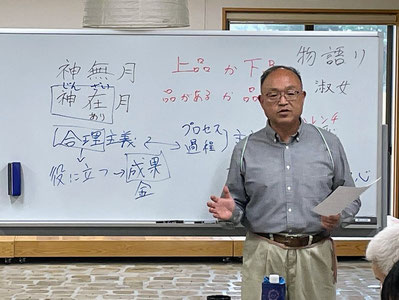 神無月
じん ざい
神在月
あり
上品か下品
品があるか品
物語り
淑女
合理主義
プロセス
過程
役に立つ→成果
金
心